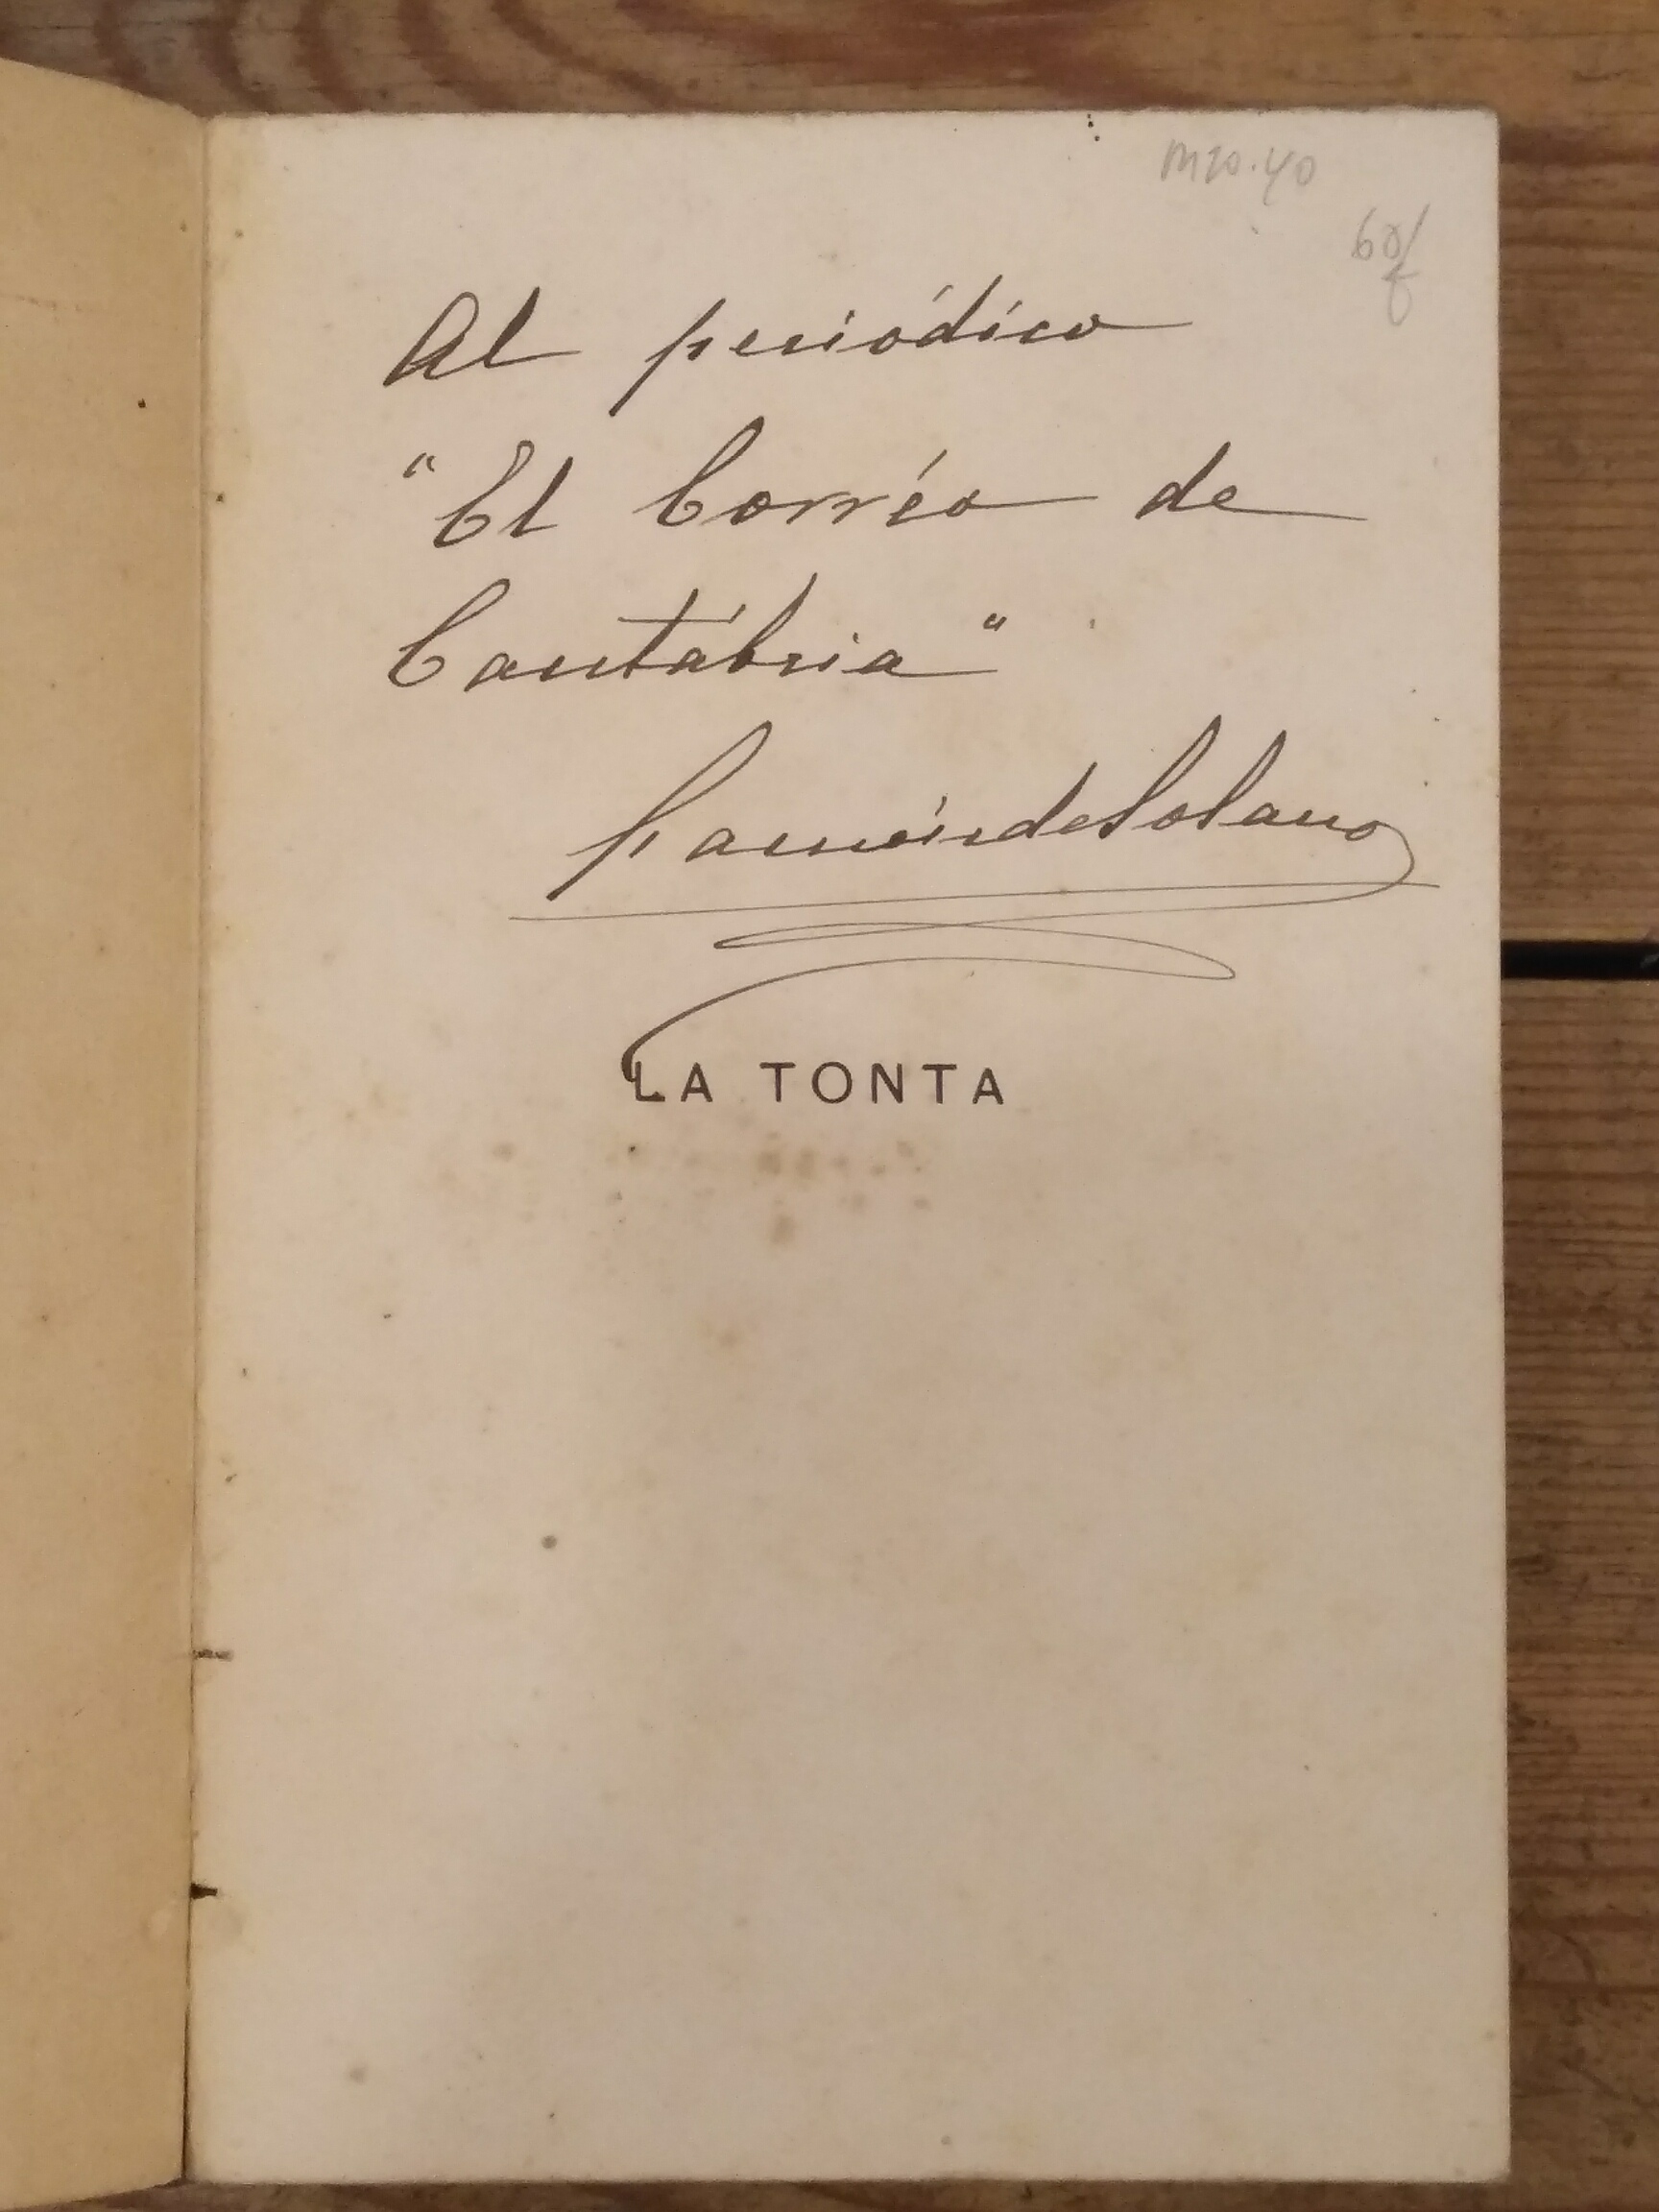 m20.40
60
Al periódico
"El Corréo de
Cantábria"
Ramón de Solano
LA TONTA